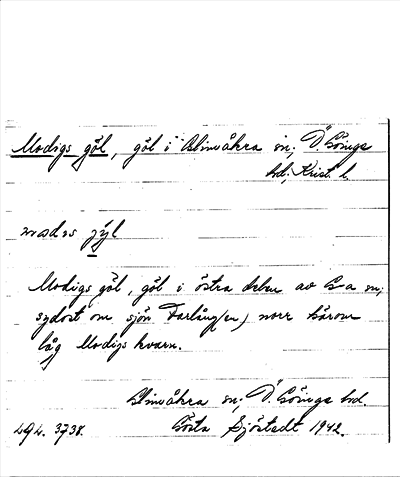 Modigs göl, göl i Glimåkra sn; Ö. Göinge
hd; Krist. l.
modas jøl
Modigs göl, göl i östra delen av G-a sn;
sydost om sjön Farlång(en) norr härom
låg Modigs kvarn.
Glimåkra sn; Ö. Göinge hd.
494. 3738. Gösta Sjöstedt 1942.